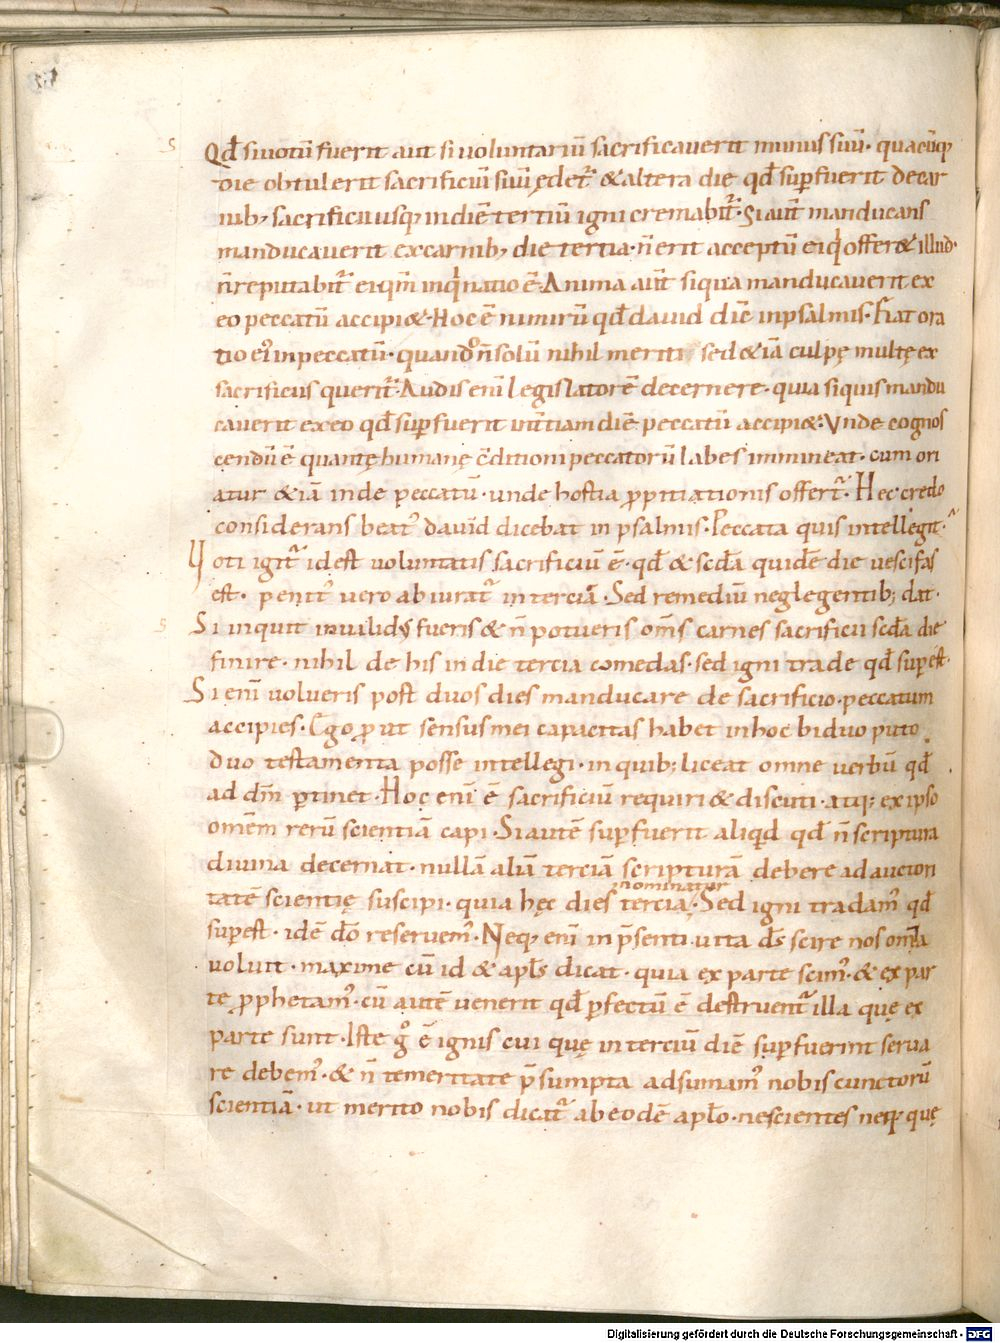 Qđ si uotū fuerit aut si uoluntariū sacrificauerit munus suū· quacūq;
die obtulerit sacrificiū suū ędet᷑ & altera die qđ supfuerit de car
nib; sacrificii usq; in diē tertiū igni cremabit᷑· Si aut̄ manducans
manducauerit ex carnib; die tertia· n̄ erit acceptū ei q offer& illud·
n̄ reputabit᷑ ei qm̄ inqinatio ē· Anima aut̄ siqua manducauerit ex
eo peccatū accipi&· Hoc ē nimirū qđ dauid dic̄ in psalmis· Fiat ora
tio ei' in peccatū· quando n̄ solū nihil meriti sed &iā culpę multę ex
sacrificiis querit᷑· Audis eni legislatorē decernere· quia siquis mandu
cauerit ex eo qđ supfuerit in t̄tiam diē peccatū accipi&· Vnde cognos
cendū ē quantę humanę c̄ditioni peccatorū labes immineat· cum ori
atur &iā inde peccatū· unde hostia ppitiationis offert᷑· Hec credo
considerans beat' dauid dicebat in psalmis· Peccata quis intellegit·
Uoti igit᷑ id est uoluntatis sacrificiū ē· qđ & scđa quidē die uesci fas
est· penit' uero abiurat᷑ in terciā· Sed remediū neglegentib; dat·
Si inquit inualidus fueris & n̄ potueris om̄s carnes sacrificii scđa die
finire· nihil de his in die tercia comedas· sed igni trade qđ supest·
Si eni uolueris post duos dies manducare de sacrificio· peccatum
accipies· Ego put sensus mei capacitas habet in hoc biduo puto
duo testamenta posse intellegi· in quib; liceat omne uerbū qđ
ad dm̄ ptinet· Hoc eni ē sacrificiū requiri & discuti· atq; ex ipso
omēm rerū scientiā capi· Si autē supfuerit aliqd qđ n̄ scriptura
diuina decernat· nullā aliā terciā scripturā debere ad auctori
tatē scientię suscipi· quia hęc dies tercia nominatur· Sed igni tradam' qđ
supest· idē dō reseruem'· Neq; eni in p̄senti uita ds̄ scire nos omīa
uoluit· maxime cū id & apls̄ dicat· quia ex parte scim'· & ex par
te pphetam'· cū autē uenerit qđ pfectū ē destruent᷑ illa quę ex
parte sunt· Iste g° ē ignis cui quę in terciū diē supfuerint serua
re debem'· & n̄ temeritate p̄sumpta adsumam' nobis cunctorū
scientiā· ut merito nobis dicat᷑ ab eodē aplo· nescientes neq; quę